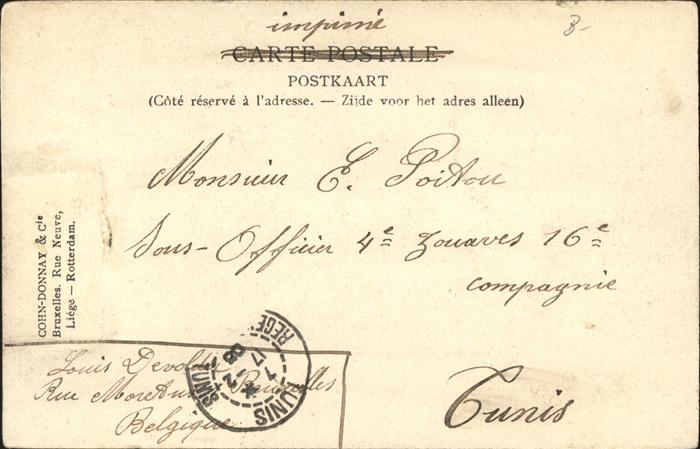 imprimé
CARTE POSTALE
POSTKAART
(Côté réservé à l'adresse. — Zijde voor het adres alleen)
B-
Monsieur E. Poitou
Sous-Officier 4e Zouaves 16e
compagnie
Tunis
COHN-DONNAY & Cie
Bruxelles. Rue Neuve,
Liége — Rotterdam.
Louis
Rue Bruxelles
Belgique
TUNIS
TUNIS